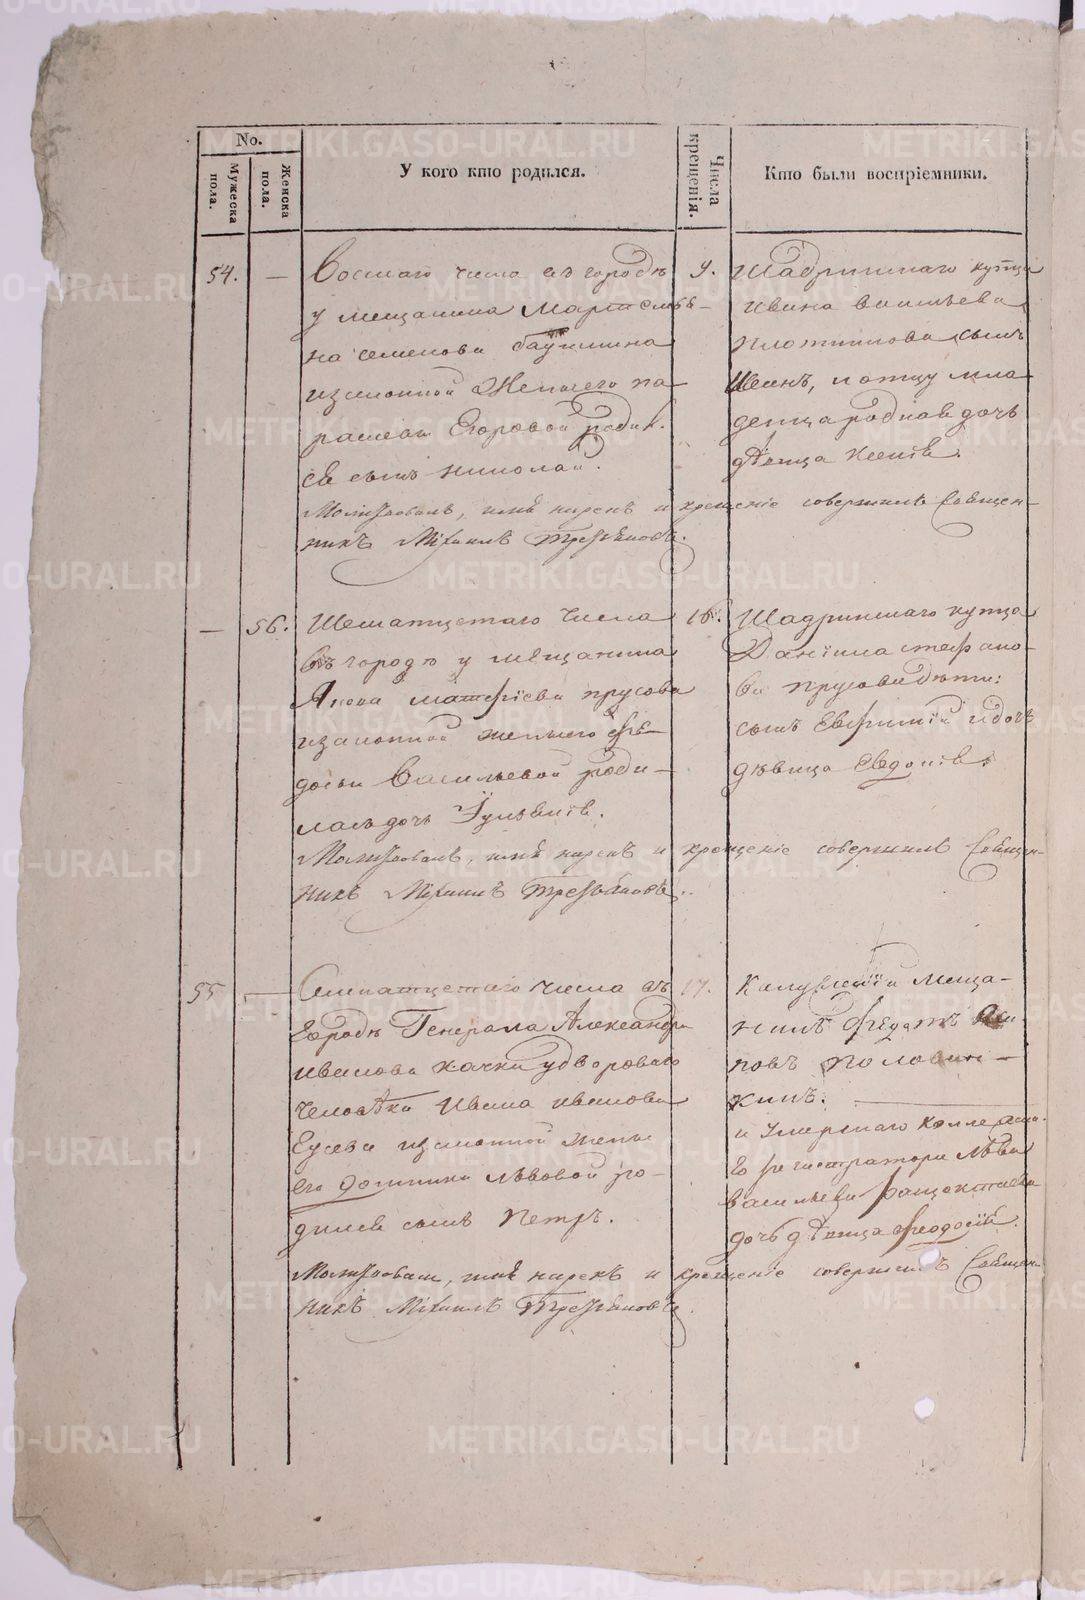 No.
Мужеска пола.
Женска пола.
У кого кто родился.
Числа крещенія.
Кто были воспріемники.
54. — Восмаго числа въ городѣ
у мещанина
на Семенова
изаконной Жены его Па-
раскевы Егоровой родил-
ся сынъ Николай.
9.
Шадринскаго купца
Ивана Васильева
Плотникова сынъ
Иванъ, и отцу мла-
денца родная дочь
дѣвица Ксенія.
Молитвовалъ, имя нарекъ и крещеніе совершилъ Священ-
никъ Михаилъ Третьяковъ.
— 56. Шеснатцетаго числа
въ городѣ у мещанина
Якова Матфіева Прусова
изаконной жены его Фе-
досьи Васильевой роди-
лась дочь Іуліянія.
16.
Шадринскаго купца
Даніила Стефано-
ва Прусова дѣти:
сынъ Евфимій и дочь
дѣвица Евдокія.
Молитвовалъ, имя нарекъ и крещеніе совершилъ Священ-
никъ Михаилъ Третьяковъ.
55 — Семнатцетаго числа въ
городѣ Генерала Александра
Иванова Качки у двороваго
человѣка Ивана Иванова
Гусева изаконной жены
его Домники Львовой ро-
дился сынъ Петръ.
17.
мѣща-
нинъ Федотъ
повъ Половин-
кинъ.
и умершаго Коллежска-
го регистратора Льва
Васильева
дочь дѣвица Феодосія.
Молитвовалъ, имя нарекъ и крещеніе совершилъ Священ-
никъ Михаилъ Третьяковъ.
METRIKI.GASO-URAL.RU